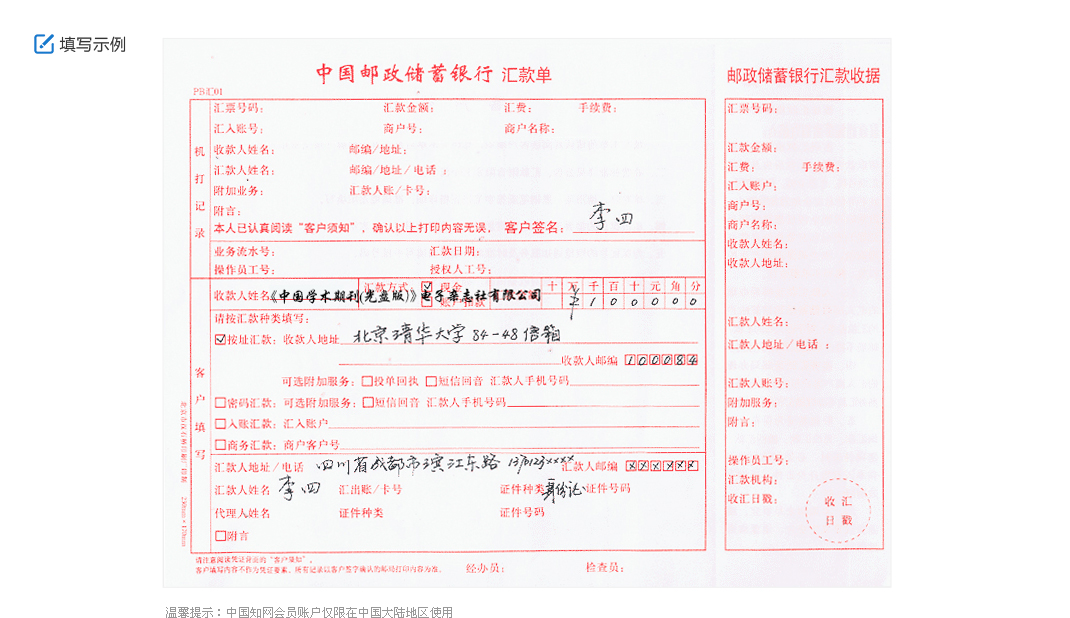 填写示例
中国邮政储蓄银行 汇款单
邮政储蓄银行汇款收据
PB汇01
机打记录
汇票号码： 汇款金额： 汇费： 手续费：
汇入账号： 商户号： 商户名称：
收款人姓名： 邮编/地址：
汇款人姓名： 邮编/地址/电话：
附加业务： 汇款人账/卡号：
附言：
本人已认真阅读“客户须知”，确认以上打印内容无误， 客户签名： 李四
业务流水号： 汇款日期：
操作员工号： 授权人工号：
客户填写
收款人姓名 《中国学术期刊(光盘版)》电子杂志社有限公司
汇款方式： ☑现金
十 万 千 百 十 元 角 分
¥ 1 0 0 0 0 0
请按汇款种类填写：
☑按址汇款： 收款人地址 北京清华大学 84-48信箱
收款人邮编 100084
可选附加服务： □投单回执 □短信回音 汇款人手机号码
□密码汇款： 可选附加服务： □短信回音 汇款人手机号码
□入账汇款： 汇入账户
□商务汇款： 商户客户号
汇款人地址/电话 四川省成都市滨江东路 1370123×××× 汇款人邮编 ××××××
汇款人姓名 李四 汇出账/卡号 证件种类 身份证 证件号码
代理人姓名 证件种类 证件号码
□附言
请注意阅读凭证背面的“客户须知”。
客户填写内容不作为凭证要素，所有记录以客户签字确认的邮局打印内容为准。 经办员： 检查员：
汇票号码：
汇款金额：
汇费： 手续费：
汇入账户：
商户号：
商户名称：
收款人姓名：
收款人地址：
汇款人姓名：
汇款人地址/电话：
汇款人账号：
附加服务：
附言：
操作员工号：
汇款机构：
收汇日戳：
收汇
日戳
温馨提示：中国知网会员账户仅限在中国大陆地区使用